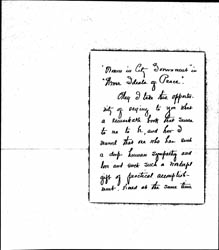 "Women in City Government" in
"Newer Ideals of Peace".
May I take this opportu-
nity of saying to you what
a remarkable book that seems
to me to be, and how I
marvel that one who has such
a deep human sympathy and
love and such a wonderful
gift of practical accomplish-
ment should at the same time